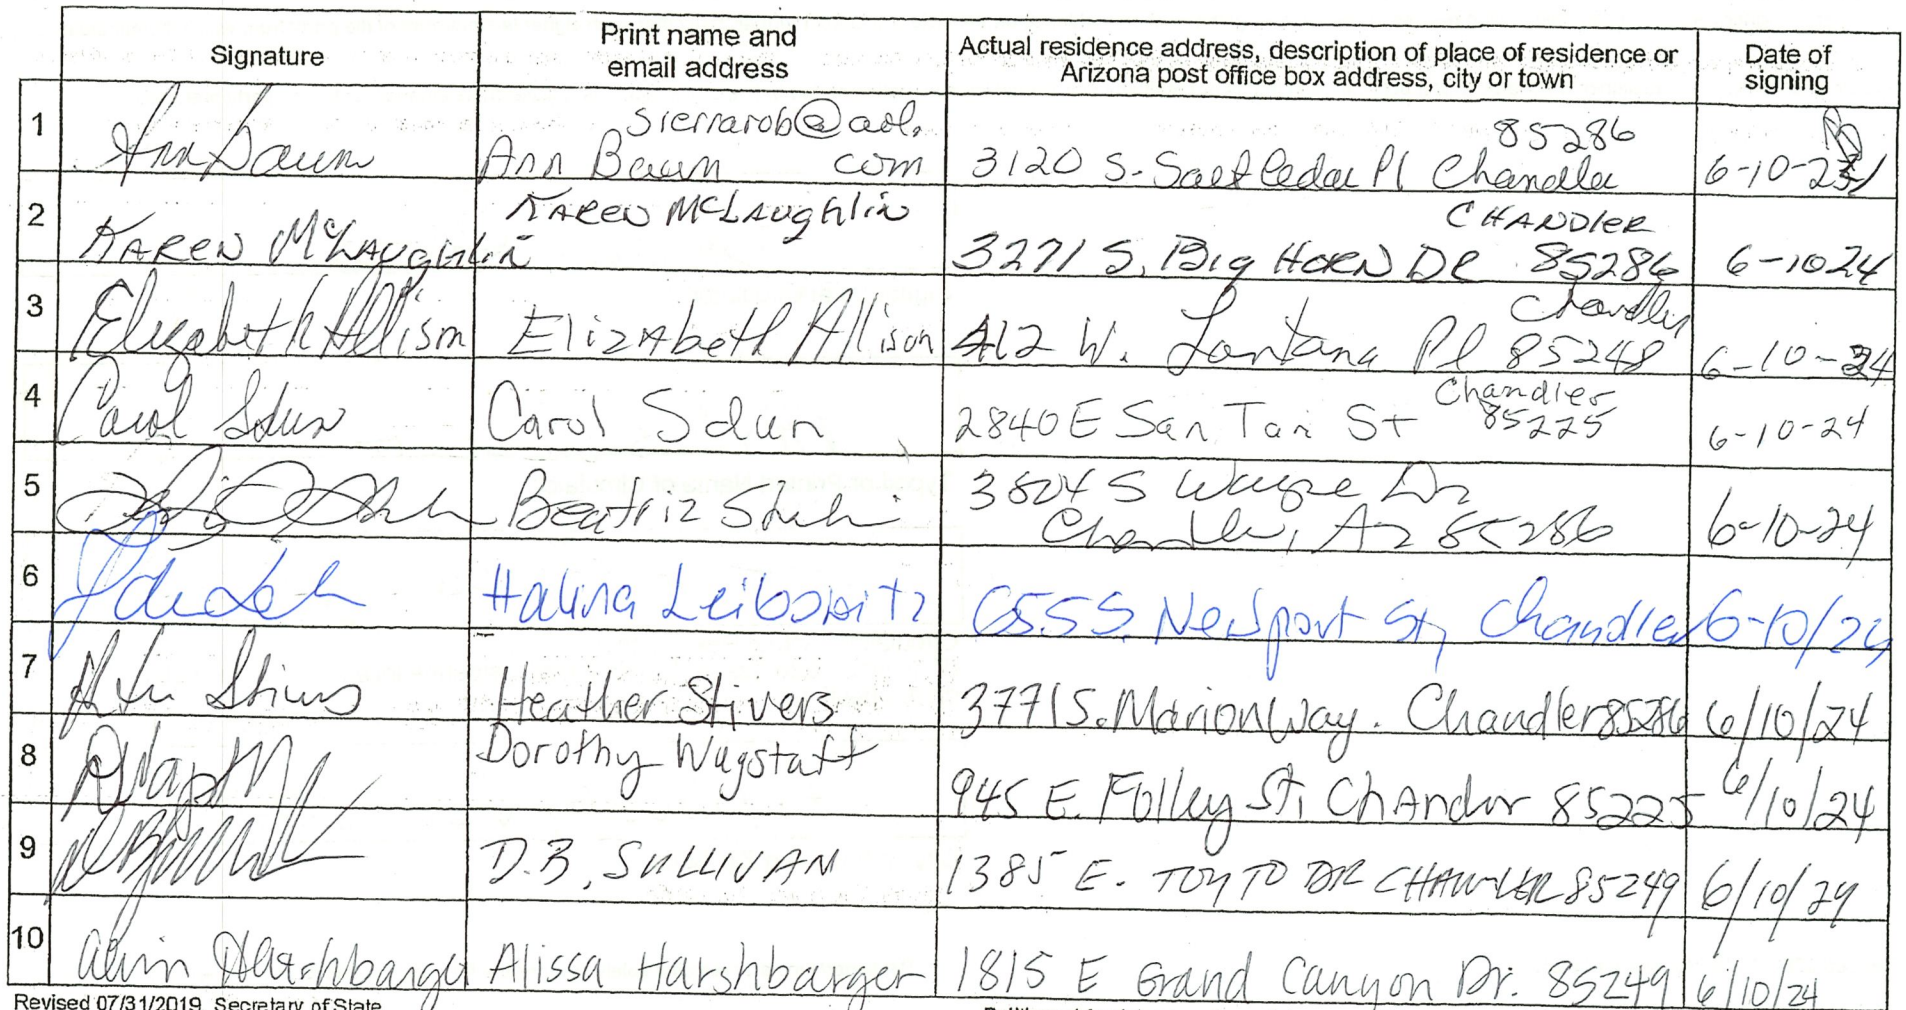 Signature
Print name and
email address
Actual residence address, description of place of residence or
Arizona post office box address, city or town
Date of
signing
1
Ann Baum
sierrarob@aol.
Ann Baum com
85286
3120 S. Saltcedar Pl Chandler
6-10-24
2
KAREN McLAughlin
KAREN McLAughlin
CHANDLER
3271 S. Big HORN DR 85286
6-10 24
3
Elizabeth Allison
ElizAbeth Allison
Chandler
412 W. Lantana Pl 85248
6-10-24
4
Carol Sdun
Carol Sdun
Chandler
2840 E San Tan St 85225
6-10-24
5
Beatriz
3804 S Wayne Dr
Chandler, Az 85286
6-10-24
6
Halina Leibowitz
655 S. Newport St, Chandler
6-10/24
7
Stivers
Heather Stivers
3771 S. Marion Way. Chandler 85286
6/10/24
8
Dorothy Wagstaff
945 E. Folley St, Chandler 85225
6/10/24
9
D.B. SULLIVAN
1385 E. TONTO DR CHANDLER 85249
6/10/24
10
Harshbarger
Alissa Harshbarger
1815 E Grand Canyon Dr. 85249
6/10/24
Revised 07/31/2019 Secretary of State